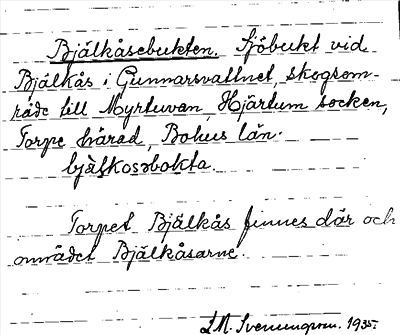 Bjälkåsebukten. Sjöbukt vid
Bjälkås i Gunnarsvattnet, skogsom-
råde till Myrtuvan, Hjärtum socken,
Torpe härad, Bohus län.
bjälkosəbokta.
Torpet Bjälkås finnes där och
området Bjälkåsarne.
1935.